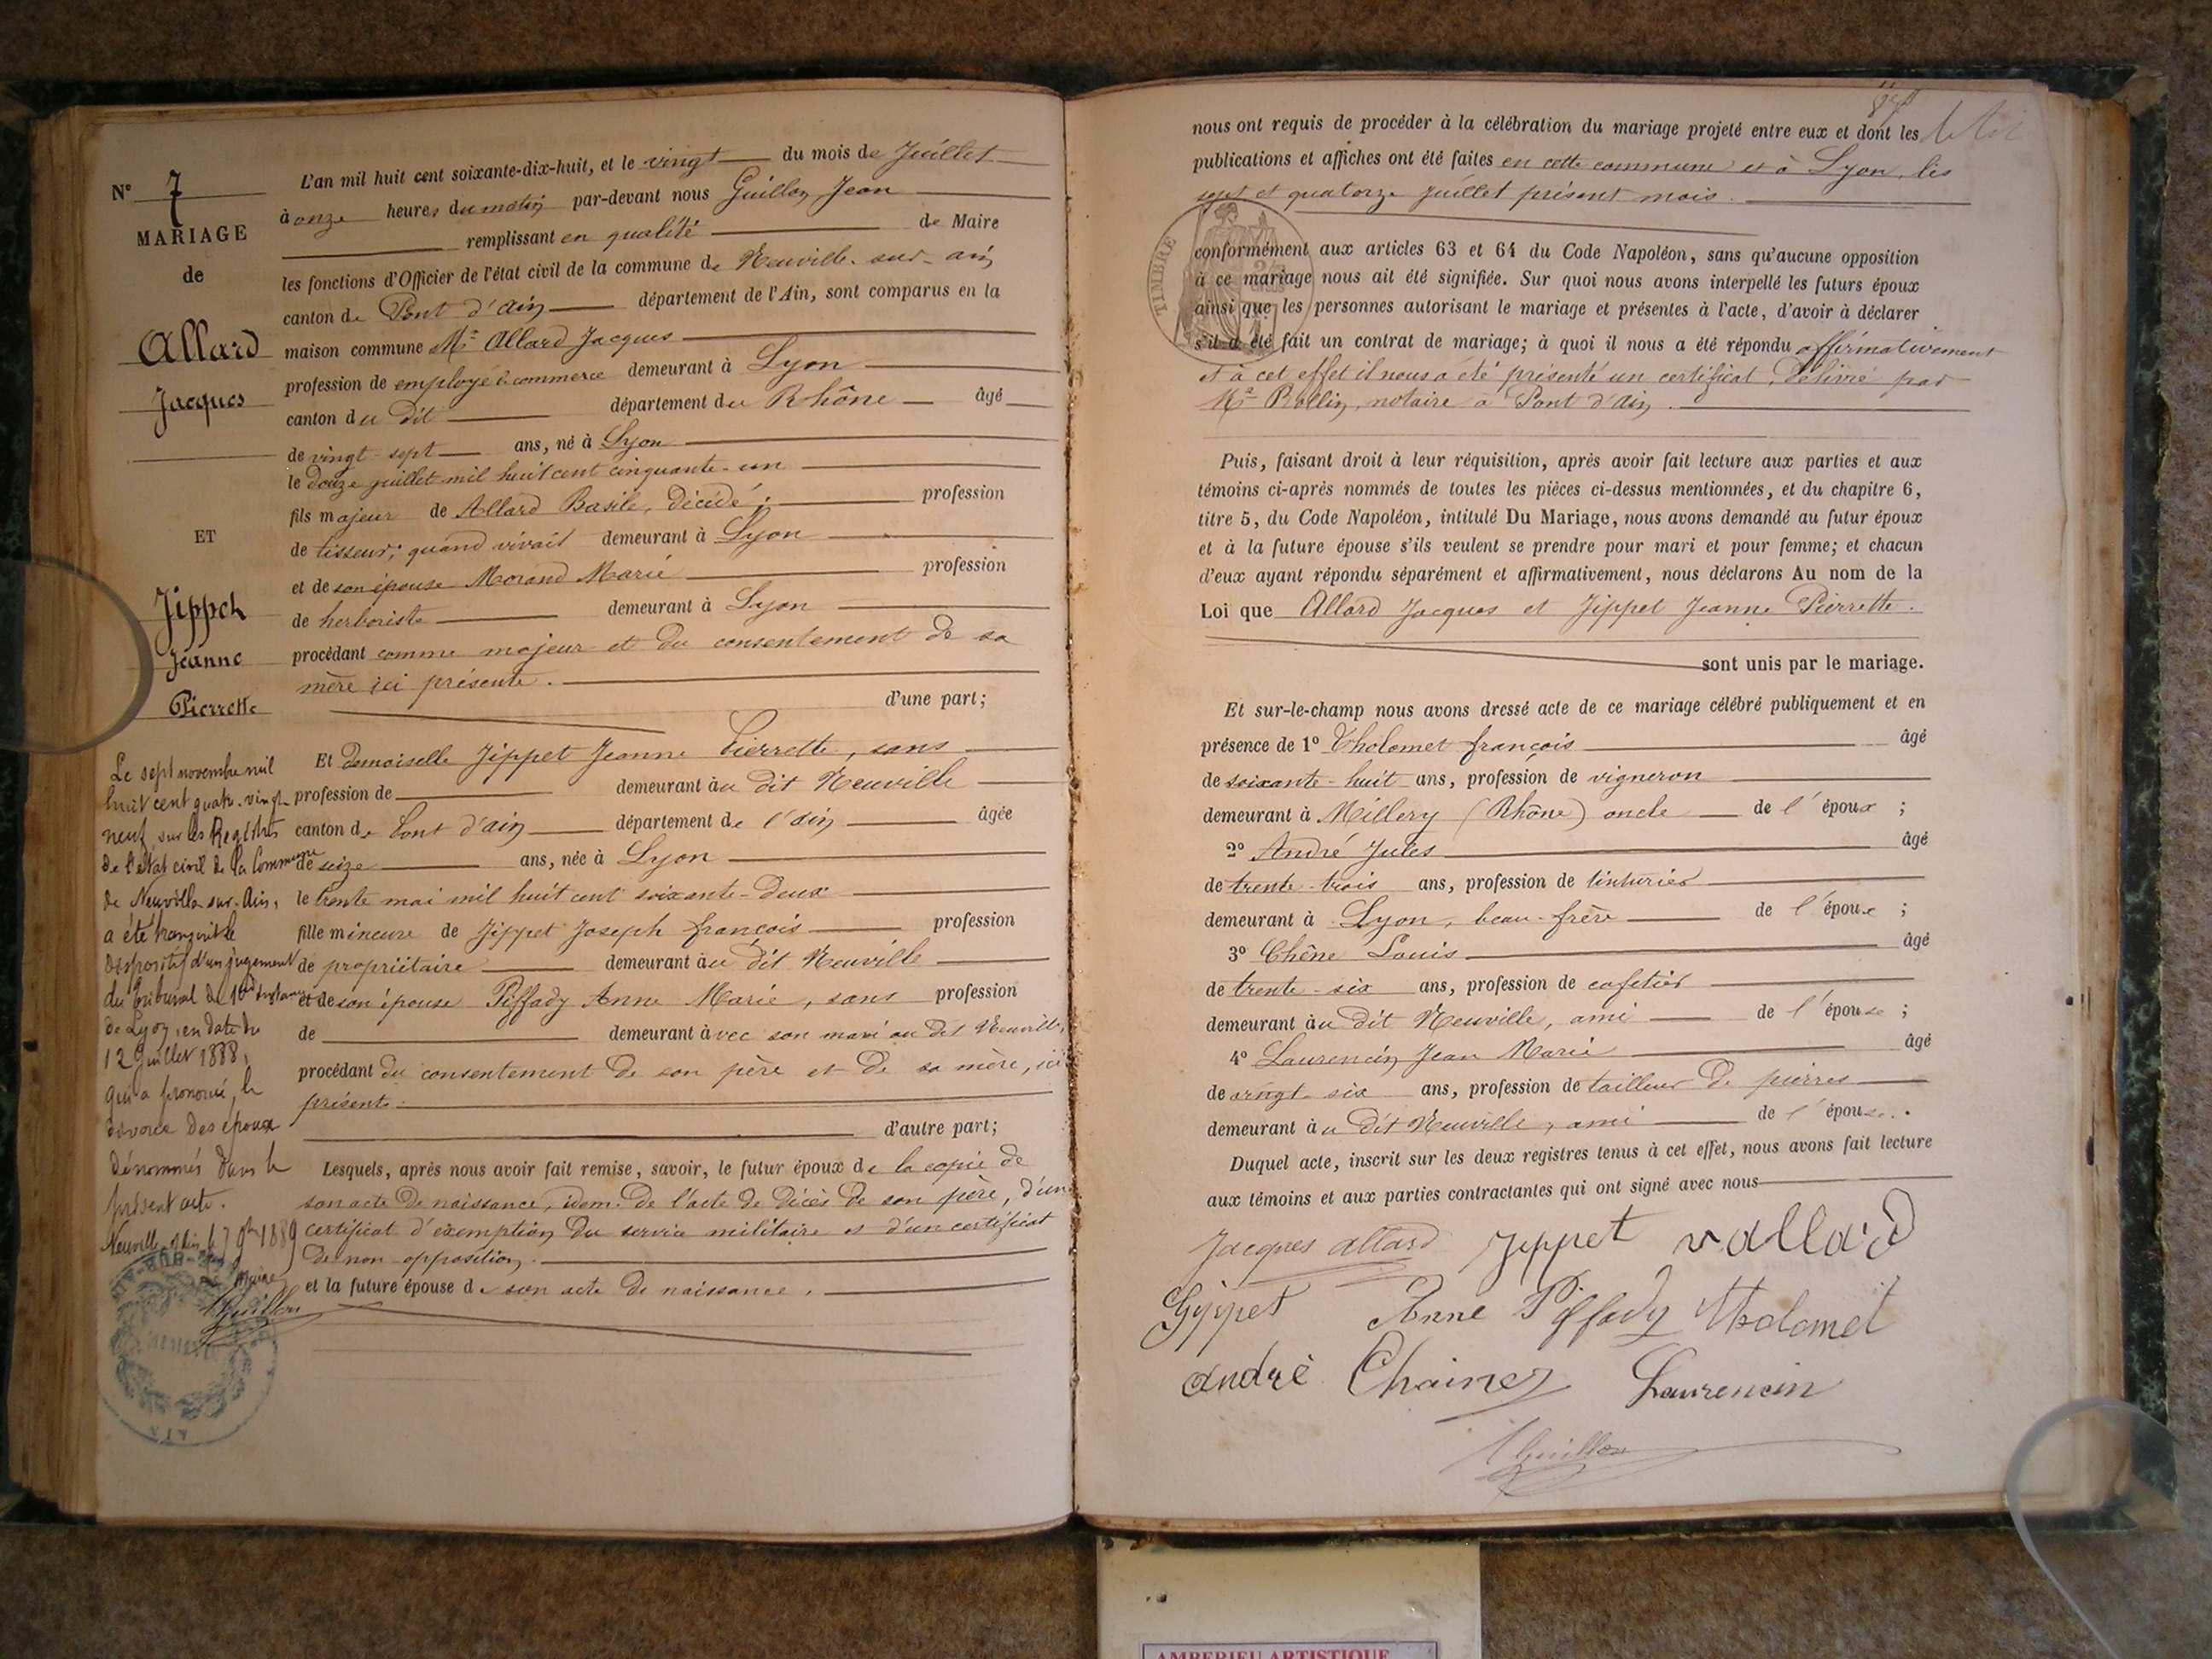 N° 7
MARIAGE
de
Allard
Jacques
ET
Jippet
Jeanne
Pierrette
Le sept novembre mil
huit cent quatre-vingt
neuf, sur les Registres
de l'état civil de la Commune
de Neuville-sur-Ain,
a été transcrit le
dispositif d'un jugement
du tribunal de 1ère Instance
de Lyon, en date du
12 Juillet 1888,
qui a prononcé, le
divorce des époux
dénommés dans le
présent acte.
Neuville s/Ain le 7 9bre 1889
Le Maire
Guillon
L'an mil huit cent soixante-dix-huit, et le vingt du mois de Juillet
à onze heures du matin par-devant nous Guillon Jean
remplissant en qualité de Maire
les fonctions d'Officier de l'état civil de la commune de Neuville-sur-ain
canton de Pont d'ain département de l'Ain, sont comparus en la
maison commune Mr Allard Jacques
profession de employé de commerce demeurant à Lyon
canton du dit département du Rhône âgé
de vingt-sept ans, né à Lyon
le douze juillet mil huit cent cinquante-un
fils majeur de Allard Basile, décédé; profession
de tisseur; quand vivait demeurant à Lyon
et de son épouse Morand Marie profession
de herboriste demeurant à Lyon
procédant comme majeur et du consentement de sa
mère ici présente.
d'une part;
Et demoiselle Jippet Jeanne Pierrette, sans
profession de demeurant àu dit Neuville
canton de Pont d'ain département de l'ain âgée
de seize ans, née à Lyon
le trente mai mil huit cent soixante-deux
fille mineure de Jippet Joseph françois profession
de propriétaire demeurant àu dit Neuville
et de son épouse Piffady Anne Marie, sans profession
de demeurant àvec son mari au dit Neuville,
procédant du consentement de son père et de sa mère, ici
présents.
d'autre part;
Lesquels, après nous avoir fait remise, savoir, le futur époux de la copie de
son acte de naissance, idem. de l'acte de décès de son père, d'un
certificat d'exemption du service militaire et d'un certificat
de non opposition.
et la future épouse de son acte de naissance.
nous ont requis de procéder à la célébration du mariage projeté entre eux et dont les
publications et affiches ont été faites en cette commune et à Lyon, les
sept et quatorze juillet présent mois.
TIMBRE
conformément aux articles 63 et 64 du Code Napoléon, sans qu'aucune opposition
à ce mariage nous ait été signifiée. Sur quoi nous avons interpellé les futurs époux
ainsi que les personnes autorisant le mariage et présentes à l'acte, d'avoir à déclarer
s'il a été fait un contrat de mariage; à quoi il nous a été répondu affirmativement
et à cet effet il nous a été présenté un certificat, délivré par
Me Rollin, notaire à Pont d'Ain.
Puis, faisant droit à leur réquisition, après avoir fait lecture aux parties et aux
témoins ci-après nommés de toutes les pièces ci-dessus mentionnées, et du chapitre 6,
titre 5, du Code Napoléon, intitulé Du Mariage, nous avons demandé au futur époux
et à la future épouse s'ils veulent se prendre pour mari et pour femme; et chacun
d'eux ayant répondu séparément et affirmativement, nous déclarons Au nom de la
Loi que Allard Jacques et Jippet Jeanne Pierrette.
sont unis par le mariage.
Et sur-le-champ nous avons dressé acte de ce mariage célébré publiquement et en
présence de 1° Tholomet françois âgé
de soixante-huit ans, profession de vigneron
demeurant à Millery (Rhône) oncle de l'époux ;
2° André Jules âgé
de trente-trois ans, profession de tinturier
demeurant à Lyon, beau-frère de l'épouse ;
3° Chêne Louis âgé
de trente-six ans, profession de cafetier
demeurant àu dit Neuville, ami de l'épouse ;
4° Laurencin Jean Marie âgé
de vingt-six ans, profession de tailleur de pierres
demeurant àu dit Neuville, ami de l'épouse.
Duquel acte, inscrit sur les deux registres tenus à cet effet, nous avons fait lecture
aux témoins et aux parties contractantes qui ont signé avec nous
Jacques allard Jippet vallard
Gippet Anne Piffady tholomet
andré Chaine Laurencin
Guillon
AMBERIEU ARTISTIQUE